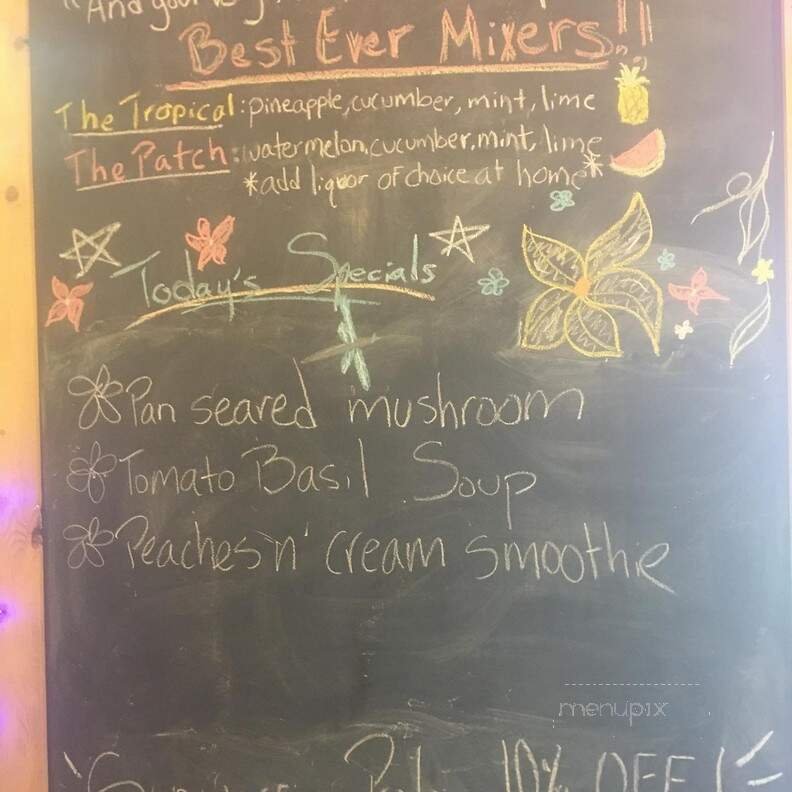 "And you
Best Ever Mixers!!
The Tropical: pineapple, cucumber, mint, lime
The Patch: watermelon, cucumber, mint, lime
*add liquor of choice at home*
Today's Specials
Pan seared mushroom
Tomato Basil Soup
Peaches 'n' cream smoothie
menupix
10% OFF!